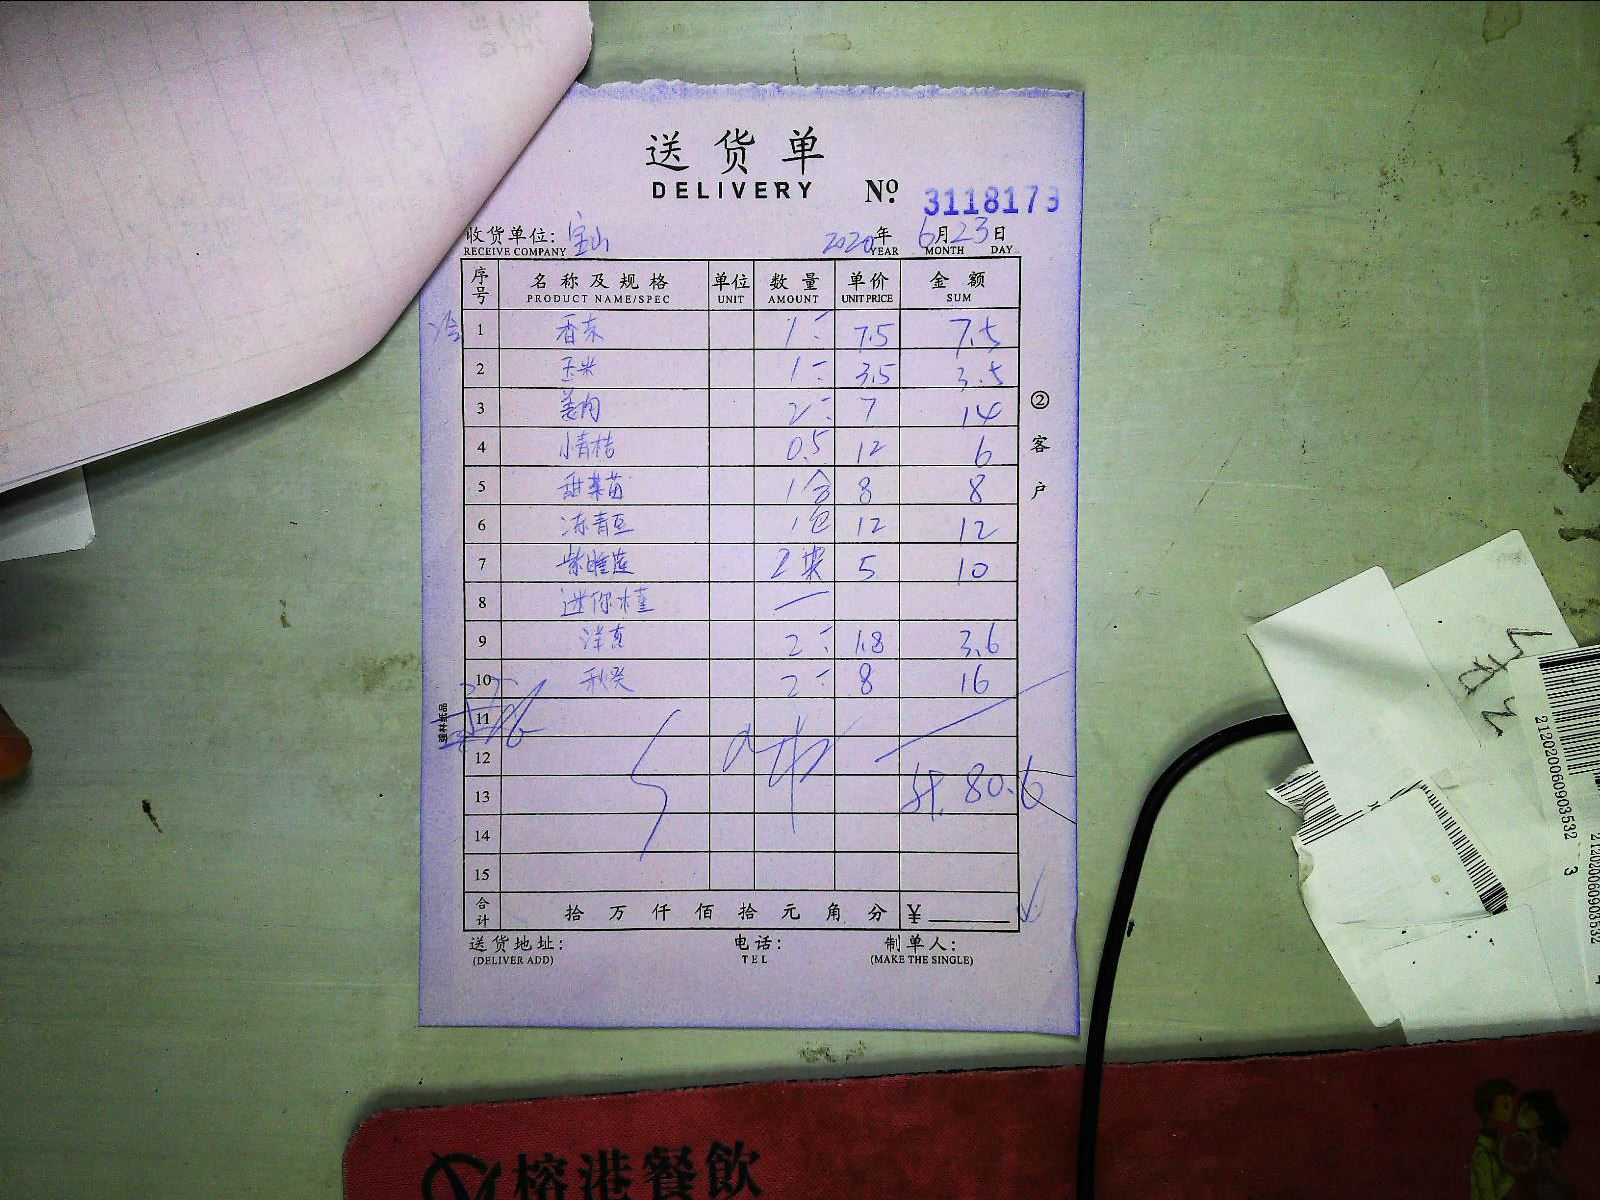 送货单
DELIVERY № 3118179
收货单位: 宝山 2020年 6月23日
RECEIVE COMPANY YEAR MONTH DAY
序号 名称及规格 单位 数量 单价 金额
PRODUCT NAME/SPEC UNIT AMOUNT UNIT PRICE SUM
1 香菜 1 7.5 7.5
2 玉米 1 3.5 3.5
3 姜肉 2 7 14
4 小青桔 0.5 12 6
5 甜菜苗 1合 8 8
6 冻青豆 1包 12 12
7 紫睡莲 2 5 10
8 迷你
9 2 1.8 3.6
10 秋葵 2 8 16
11
12
13 计. 80.6
14
15
合计 拾 万 仟 佰 拾 元 角 分 ¥
送货地址: 电话: 制单人:
(DELIVER ADD) TEL (MAKE THE SINGLE)
②客户
榕港餐飲
212020060903532 3
212020060903532